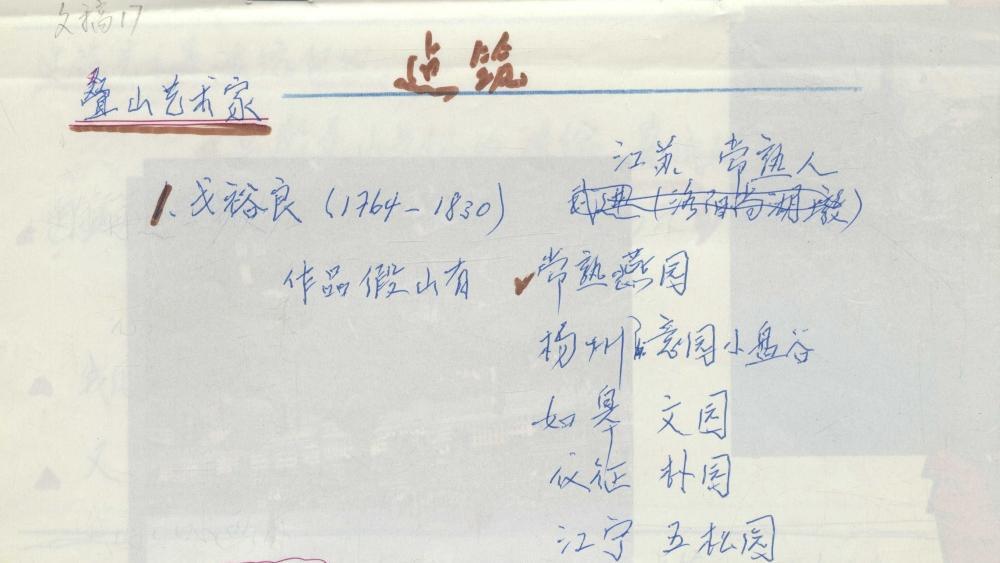 文稿17
造筑
叠山艺术家
江苏 常熟人
1. 戈裕良（1764-1830） 武进（洛阳尚湖墩）
作品假山有 常熟燕园
扬州 意园小盘谷
如皋 文园
仪征 朴园
江宁 五松园